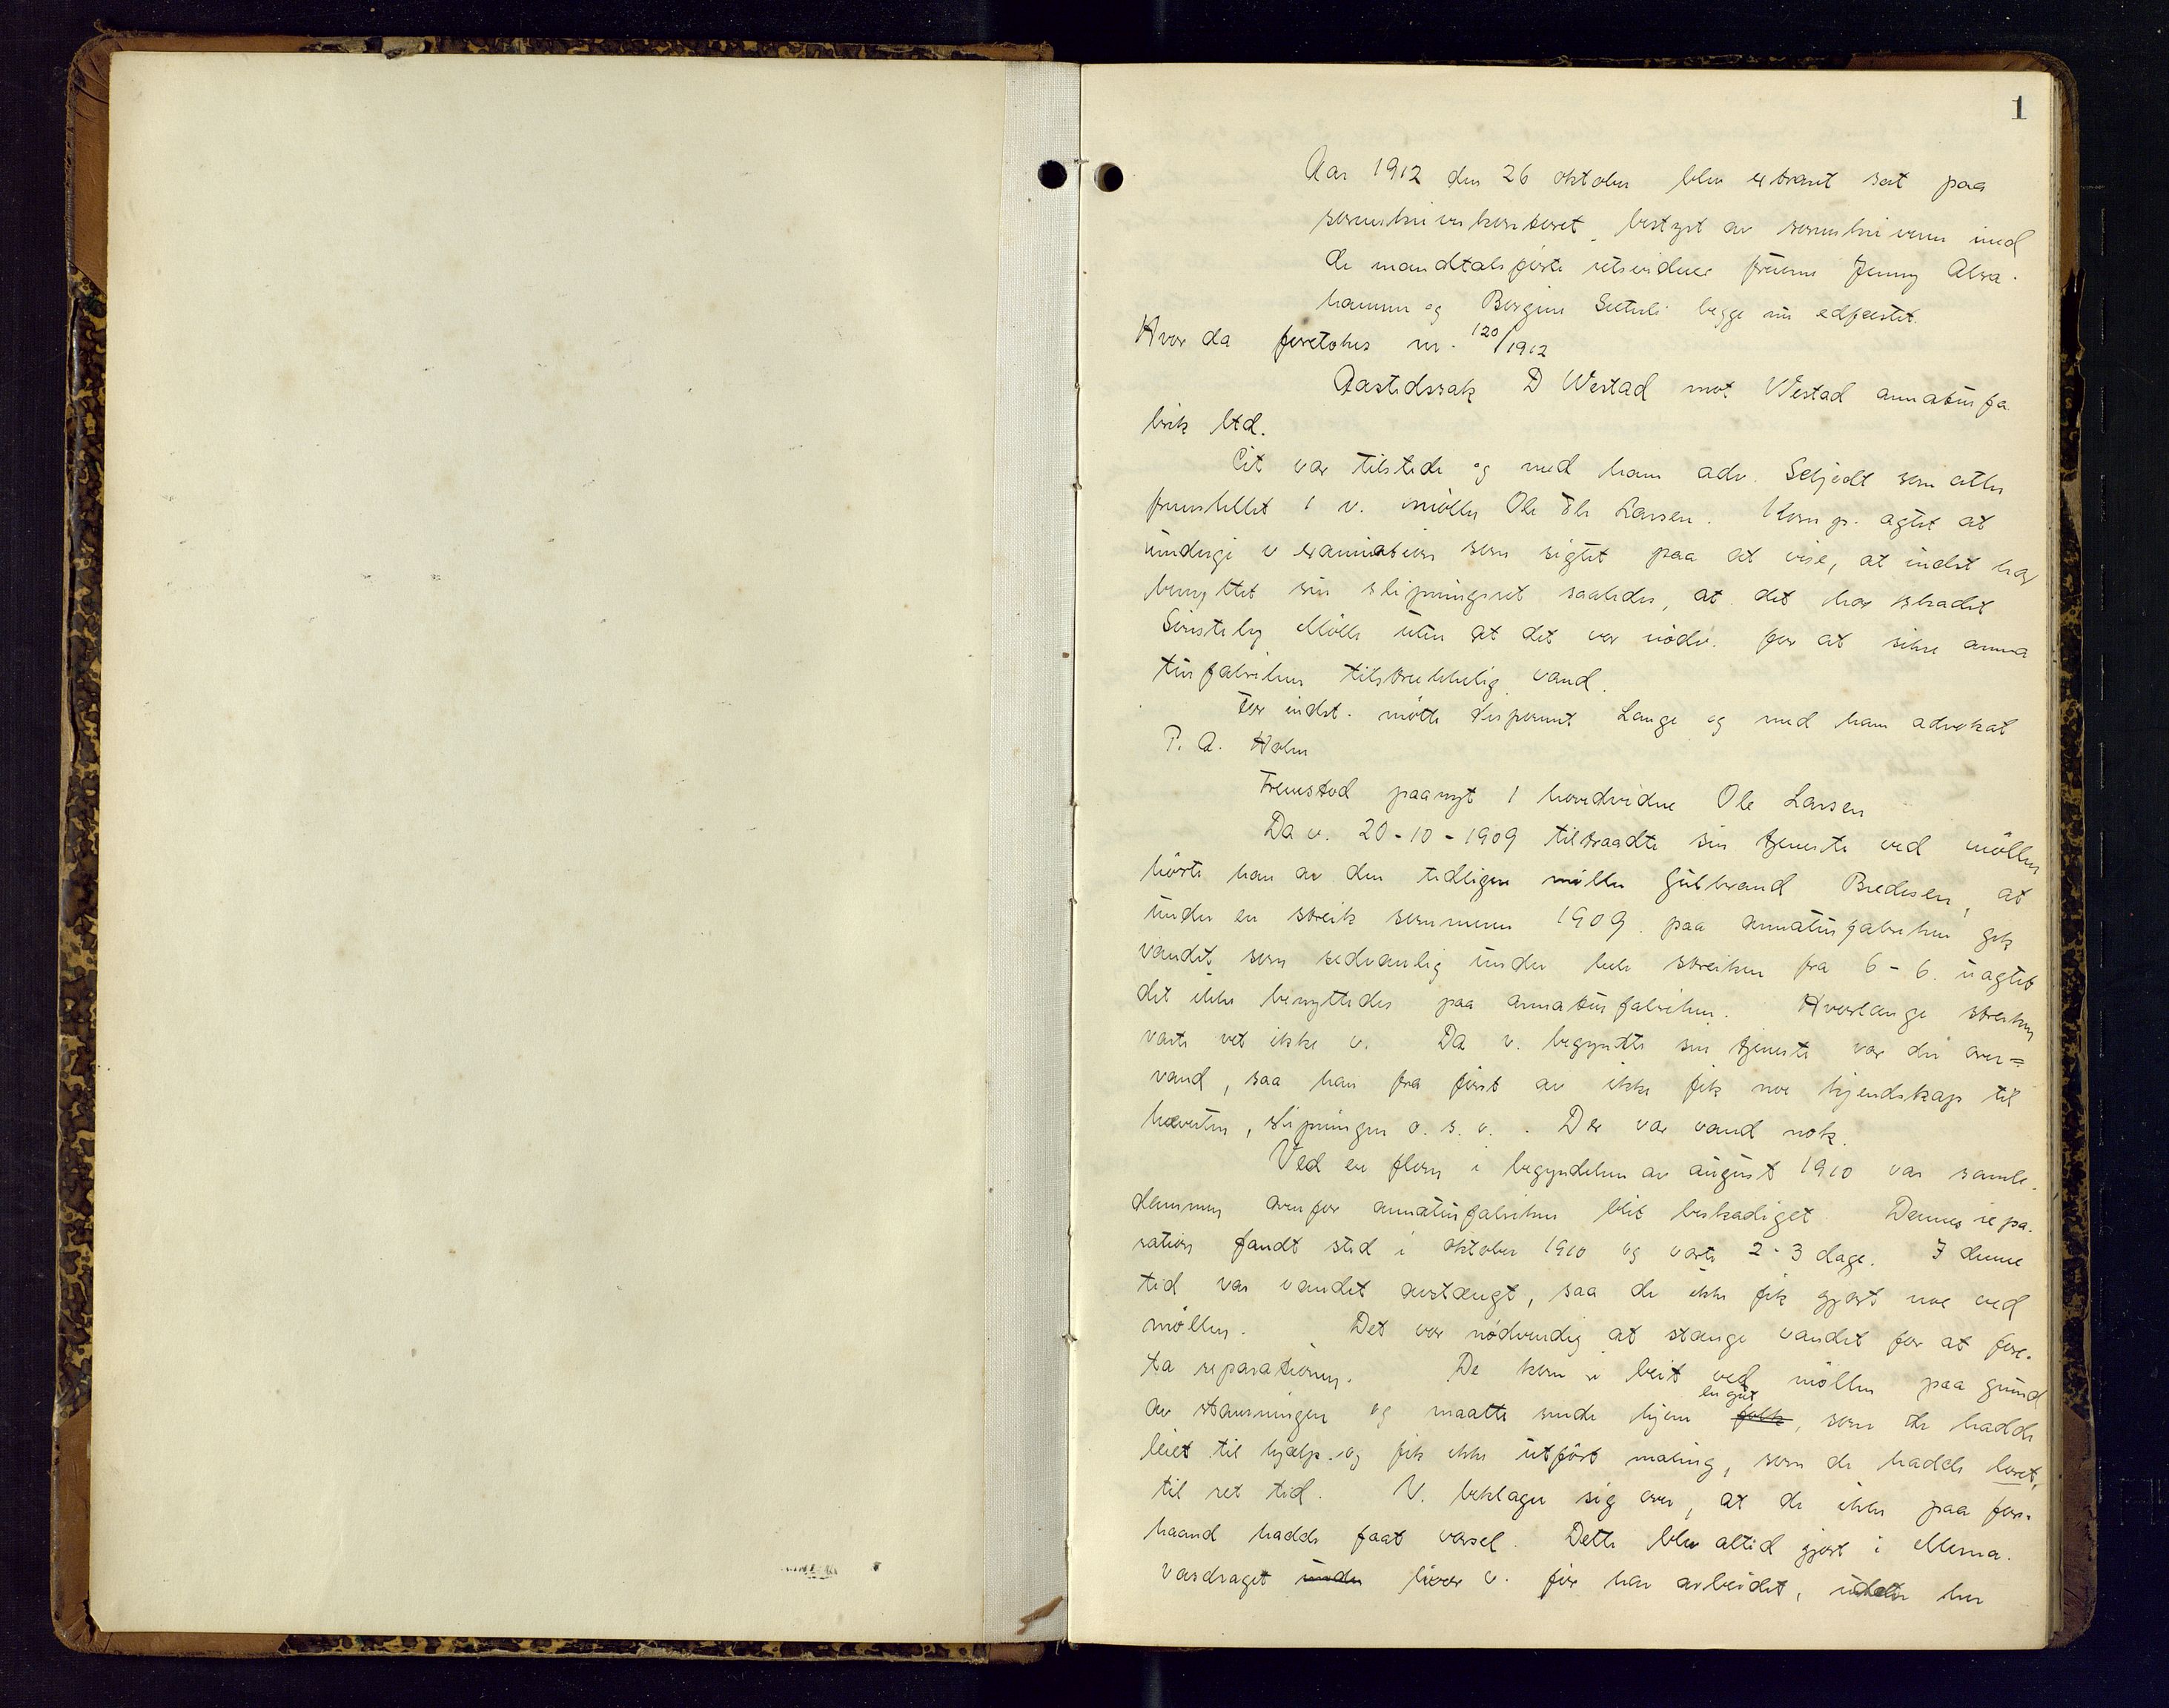 1
Aar 1912 den 26 oktober blev extraret sat paa
sorenskriverkontoret, bestyret av sorenskriveren med
de mandtalsførte retsvidner fruerne Jenny Abra-
hamsen og Bergine Sæterli begge nu edfæstet.
Hvor da foretokes nr. 120/1912
Aastedssak D Westad mot Westad armaturfa
brik ltd.
Cit var tilstede og med ham adv. Schjødt som atter
fremstillet 1 v. møller Ole Larsen. Komp. agtet at
undergi v examination som sigtet paa at vise, at indst har
benyttet sin slipningsret saaledes, at det har skadet
Mølle uten at det var nødv. for at sikre arma
turfabriken tilstrækkelig vand.
For indst. møtte disponent Lange og med ham advokat
P. A. Holm
Fremstod paanyt 1 hovedvidne Ole Larsen
Da v. 20-10-1909 tiltraadte sin tjeneste ved møllen
hørte han av den tidligere møller Gulbrand Bredesen, at
under en streik sommeren 1909 paa armaturfabriken gik
vandet som sedvanlig under hele streiken fra 6-6. uagtet
det ikke benyttedes paa armaturfabriken. Hvorlænge streiken
varte vet ikke v. Da v. begyndte sin tjeneste var der over=
vand, saa han fra først av ikke fik noe kjendskap til
hæverten, slipningen o. s. v. . Der var vand nok.
Ved en flom i begyndelsen av august 1910 var samle-
dammen ovenfor armaturfabriken blit beskadiget. Dennes repa-
ration fandt sted i oktober 1910 og varte 2-3 dage. I denne
tid var vandet avstængt, saa de ikke fik gjort noe ved
møllen. Det var nødvendig at stænge vandet for at fore-
ta reparationen. De kom i beit ved møllen paa grund
av stansningen og maatte sende hjem folk en gut, som de hadde
leiet til hjælp og fik ikke utført maling, som de hadde lovet,
til ret tid. V. beklager sig over, at de ikke paa for-
haand hadde faat varsel. Dette blev altid gjort i Mesna-
vasdraget under hvor v. før har arbeidet, her